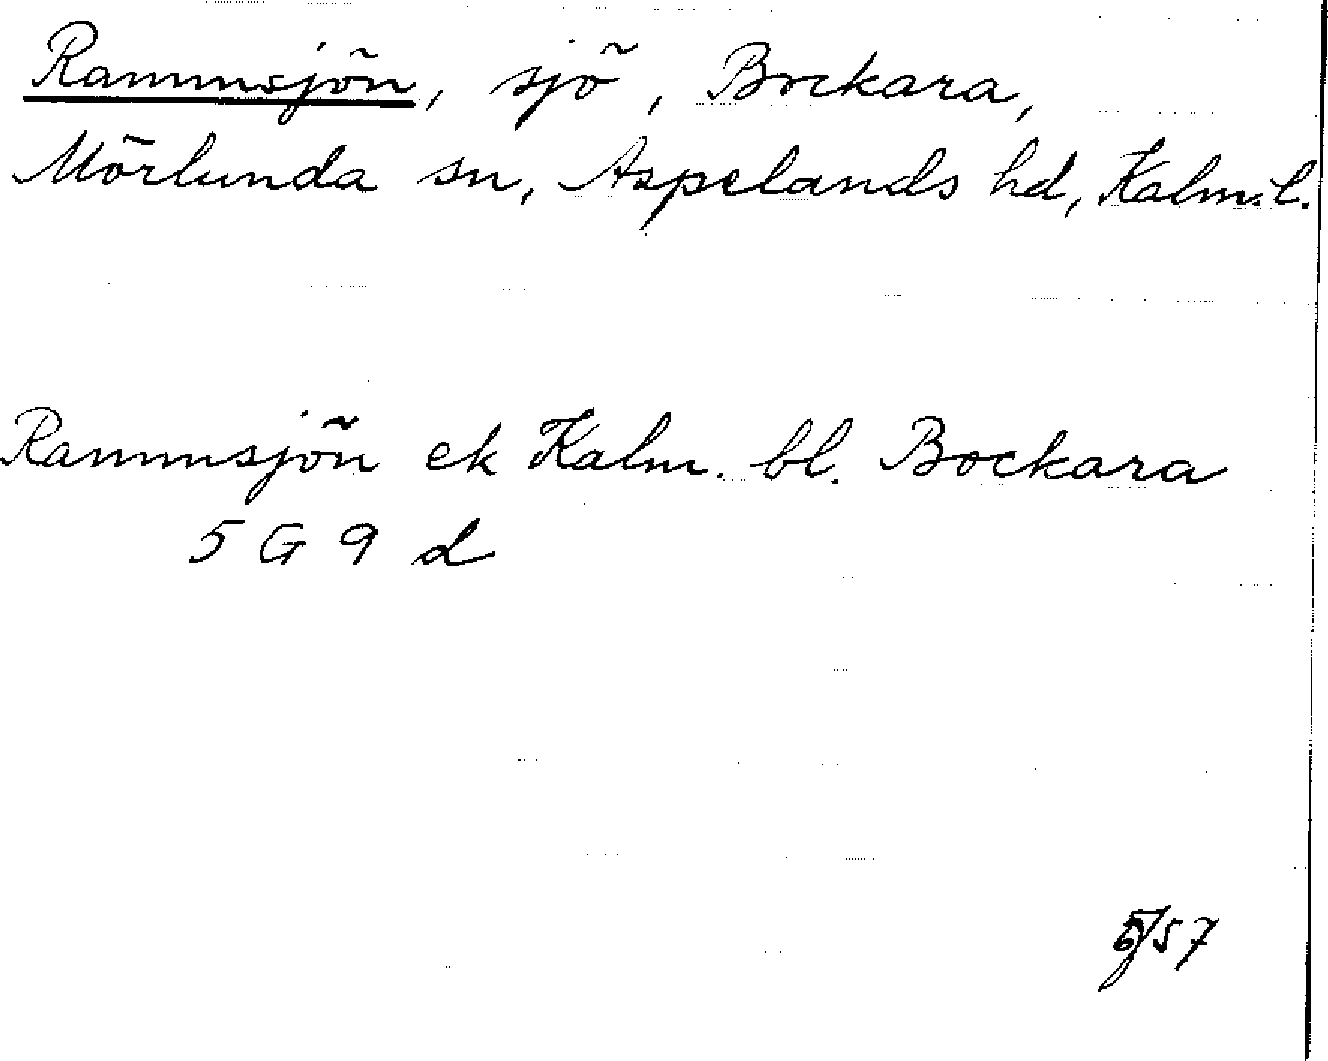 Rammsjön, sjö, Bockara,
Mörlunda sn, Aspelands hd, Kalm. l.
Rammsjön ek Kalm. bl. Bockara
5 G 9 d